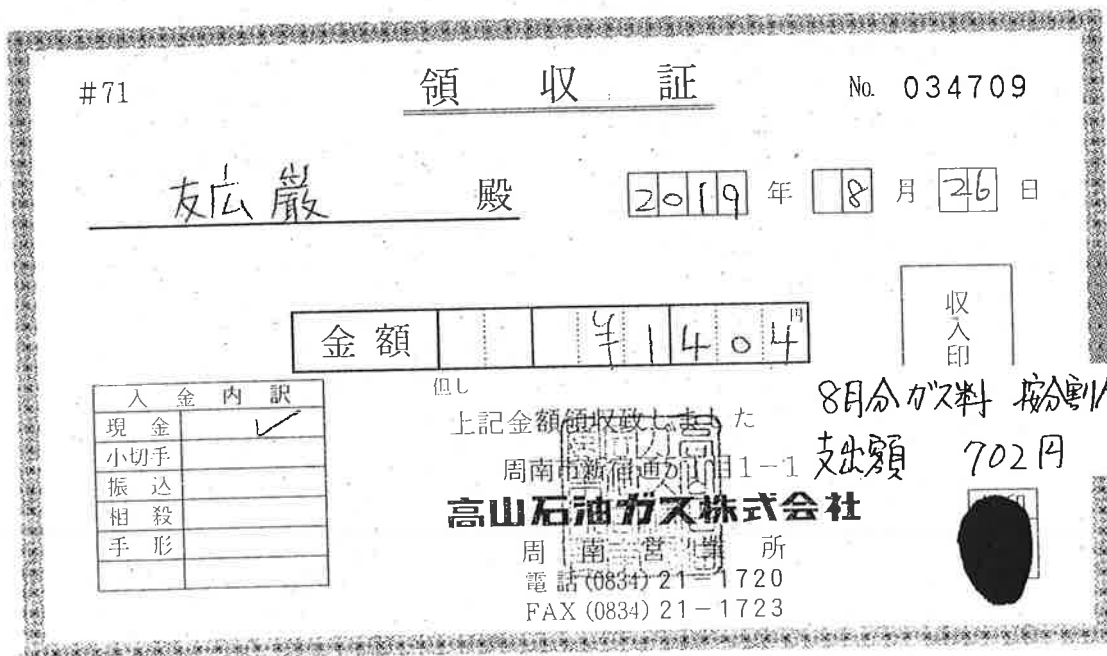 #71
領収証
No. 034709
友広 厳 殿
2019年 8月26日
金額 ¥1404円
収入印
但し
入金内訳
現金 ✓
小切手
振込
相殺
手形
上記金額領収致しました
8月分ガス料 按分割
支出額 702円
周南市新宿通 1-1
高山石油ガス株式会社
周南営業所
電話(0834)21-1720
FAX(0834)21-1723